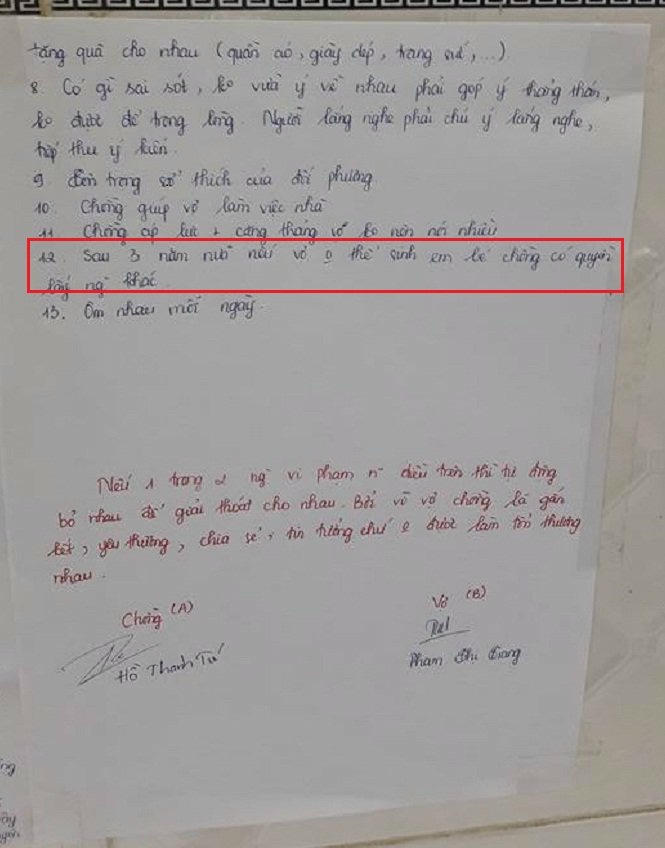 tăng quà cho nhau (quần áo, giày dép, trang sức,...)
8. Có gì sai sót, ko vừa ý về nhau phải góp ý thẳng thắn,
ko được để trong lòng. Người lắng nghe phải chú ý lắng nghe,
tiếp thu ý kiến.
9. Tôn trọng sở thích của đối phương
10. Chồng giúp vợ làm việc nhà
11. Chồng áp lực + căng thẳng vợ ko nên nói nhiều
12. Sau 3 năm nữa nếu vợ o thể sinh em bé chồng có quyền
lấy ng khác.
13. Ôm nhau mỗi ngày.
Nếu 1 trong 2 ng vi phạm n~ điều trên thì tự động
bỏ nhau để giải thoát cho nhau. Bởi vì vợ chồng là gắn
kết, yêu thương, chia sẻ, tin tưởng chứ o được làm tổn thương
nhau.
Chồng (A)
Vợ (B)
Hồ Thanh Tú
Phạm Thị Giang